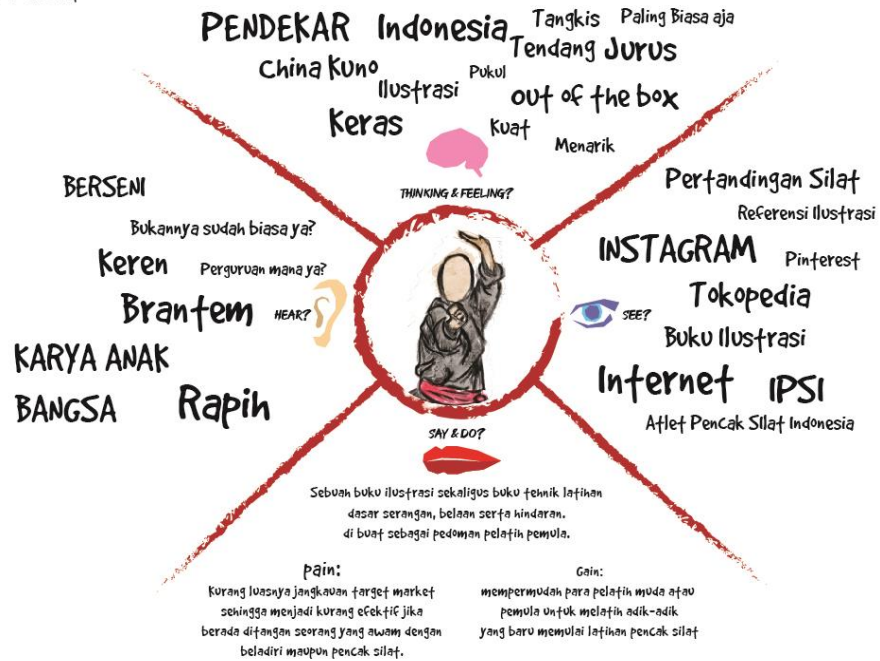 PENDEKAR Indonesia Tangkis Paling Biasa aja
Tendang Jurus
China Kuno Pukul
Ilustrasi out of the box
Keras Kuat
Menarik
THINKING & FEELING?
BERSENI
Bukannya sudah biasa ya?
Keren Perguruan mana ya?
Brantem
HEAR?
KARYA ANAK
BANGSA Rapih
Pertandingan Silat
Referensi Ilustrasi
INSTAGRAM Pinterest
Tokopedia
SEE?
Buku Ilustrasi
Internet IPSI
Atlet Pencak SIlat Indonesia
SAY & DO?
Sebuah buku ilustrasi sekaligus buku tehnik latihan
dasar serangan, belaan serta hindaran.
di buat sebagai pedoman pelatih pemula.
pain:
Kurang luasnya jangkauan target market
sehingga menjadi kurang efektif jika
berada ditangan seorang yang awam dengan
beladiri maupun pencak silat.
Gain:
mempermudah para pelatih muda atau
pemula untuk melatih adik-adik
yang baru memulai latihan pencak silat